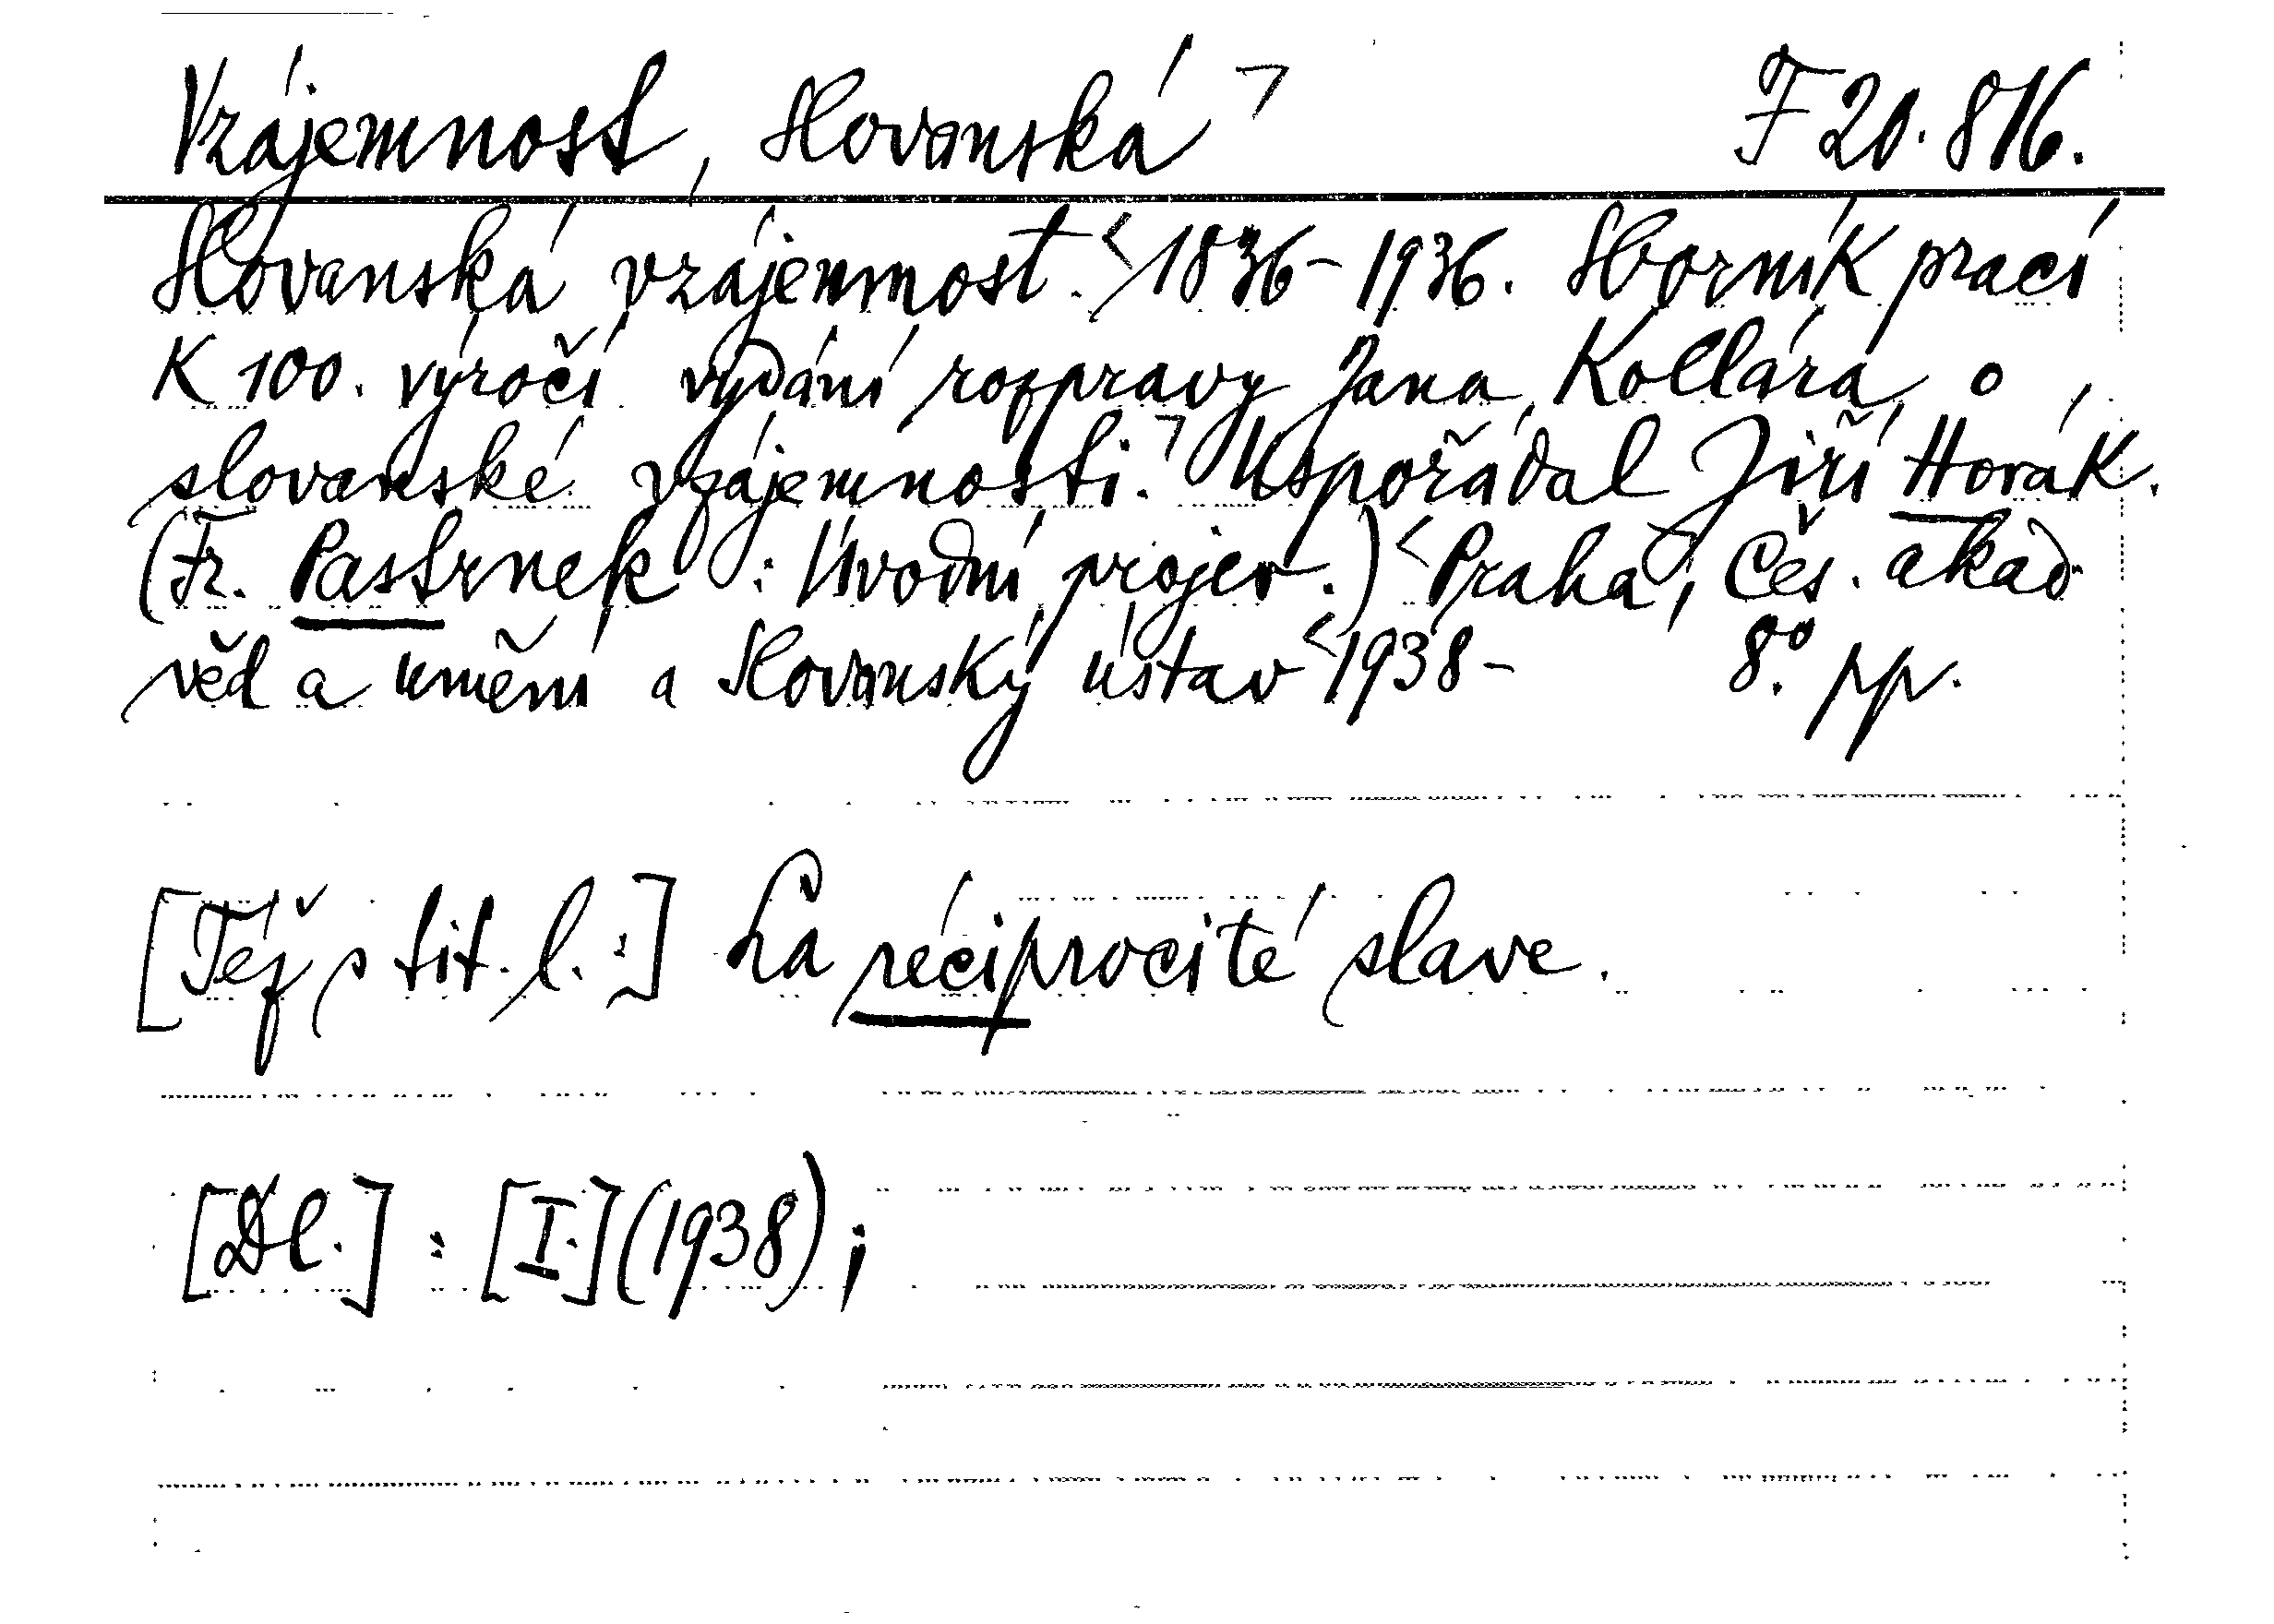 Vzájemnost, Slovanská ┐ F 20.816.
Slovanská vzájemnost. < 1836-1936. Sborník prací
K 100. výročí vydání rozpravy Jana Kollára o
slovanské vzájemnosti. ┐ Uspořádal Jiří Horák.
(Fr. Pastrnek: Úvodní projev.) < Praha, Čes. akad
věd a umění a Slovanský ústav < 1938- 8°. pp.
[Též s tit. l.:] La réciprocité slave.
[Dl.] : [I.] (1938);